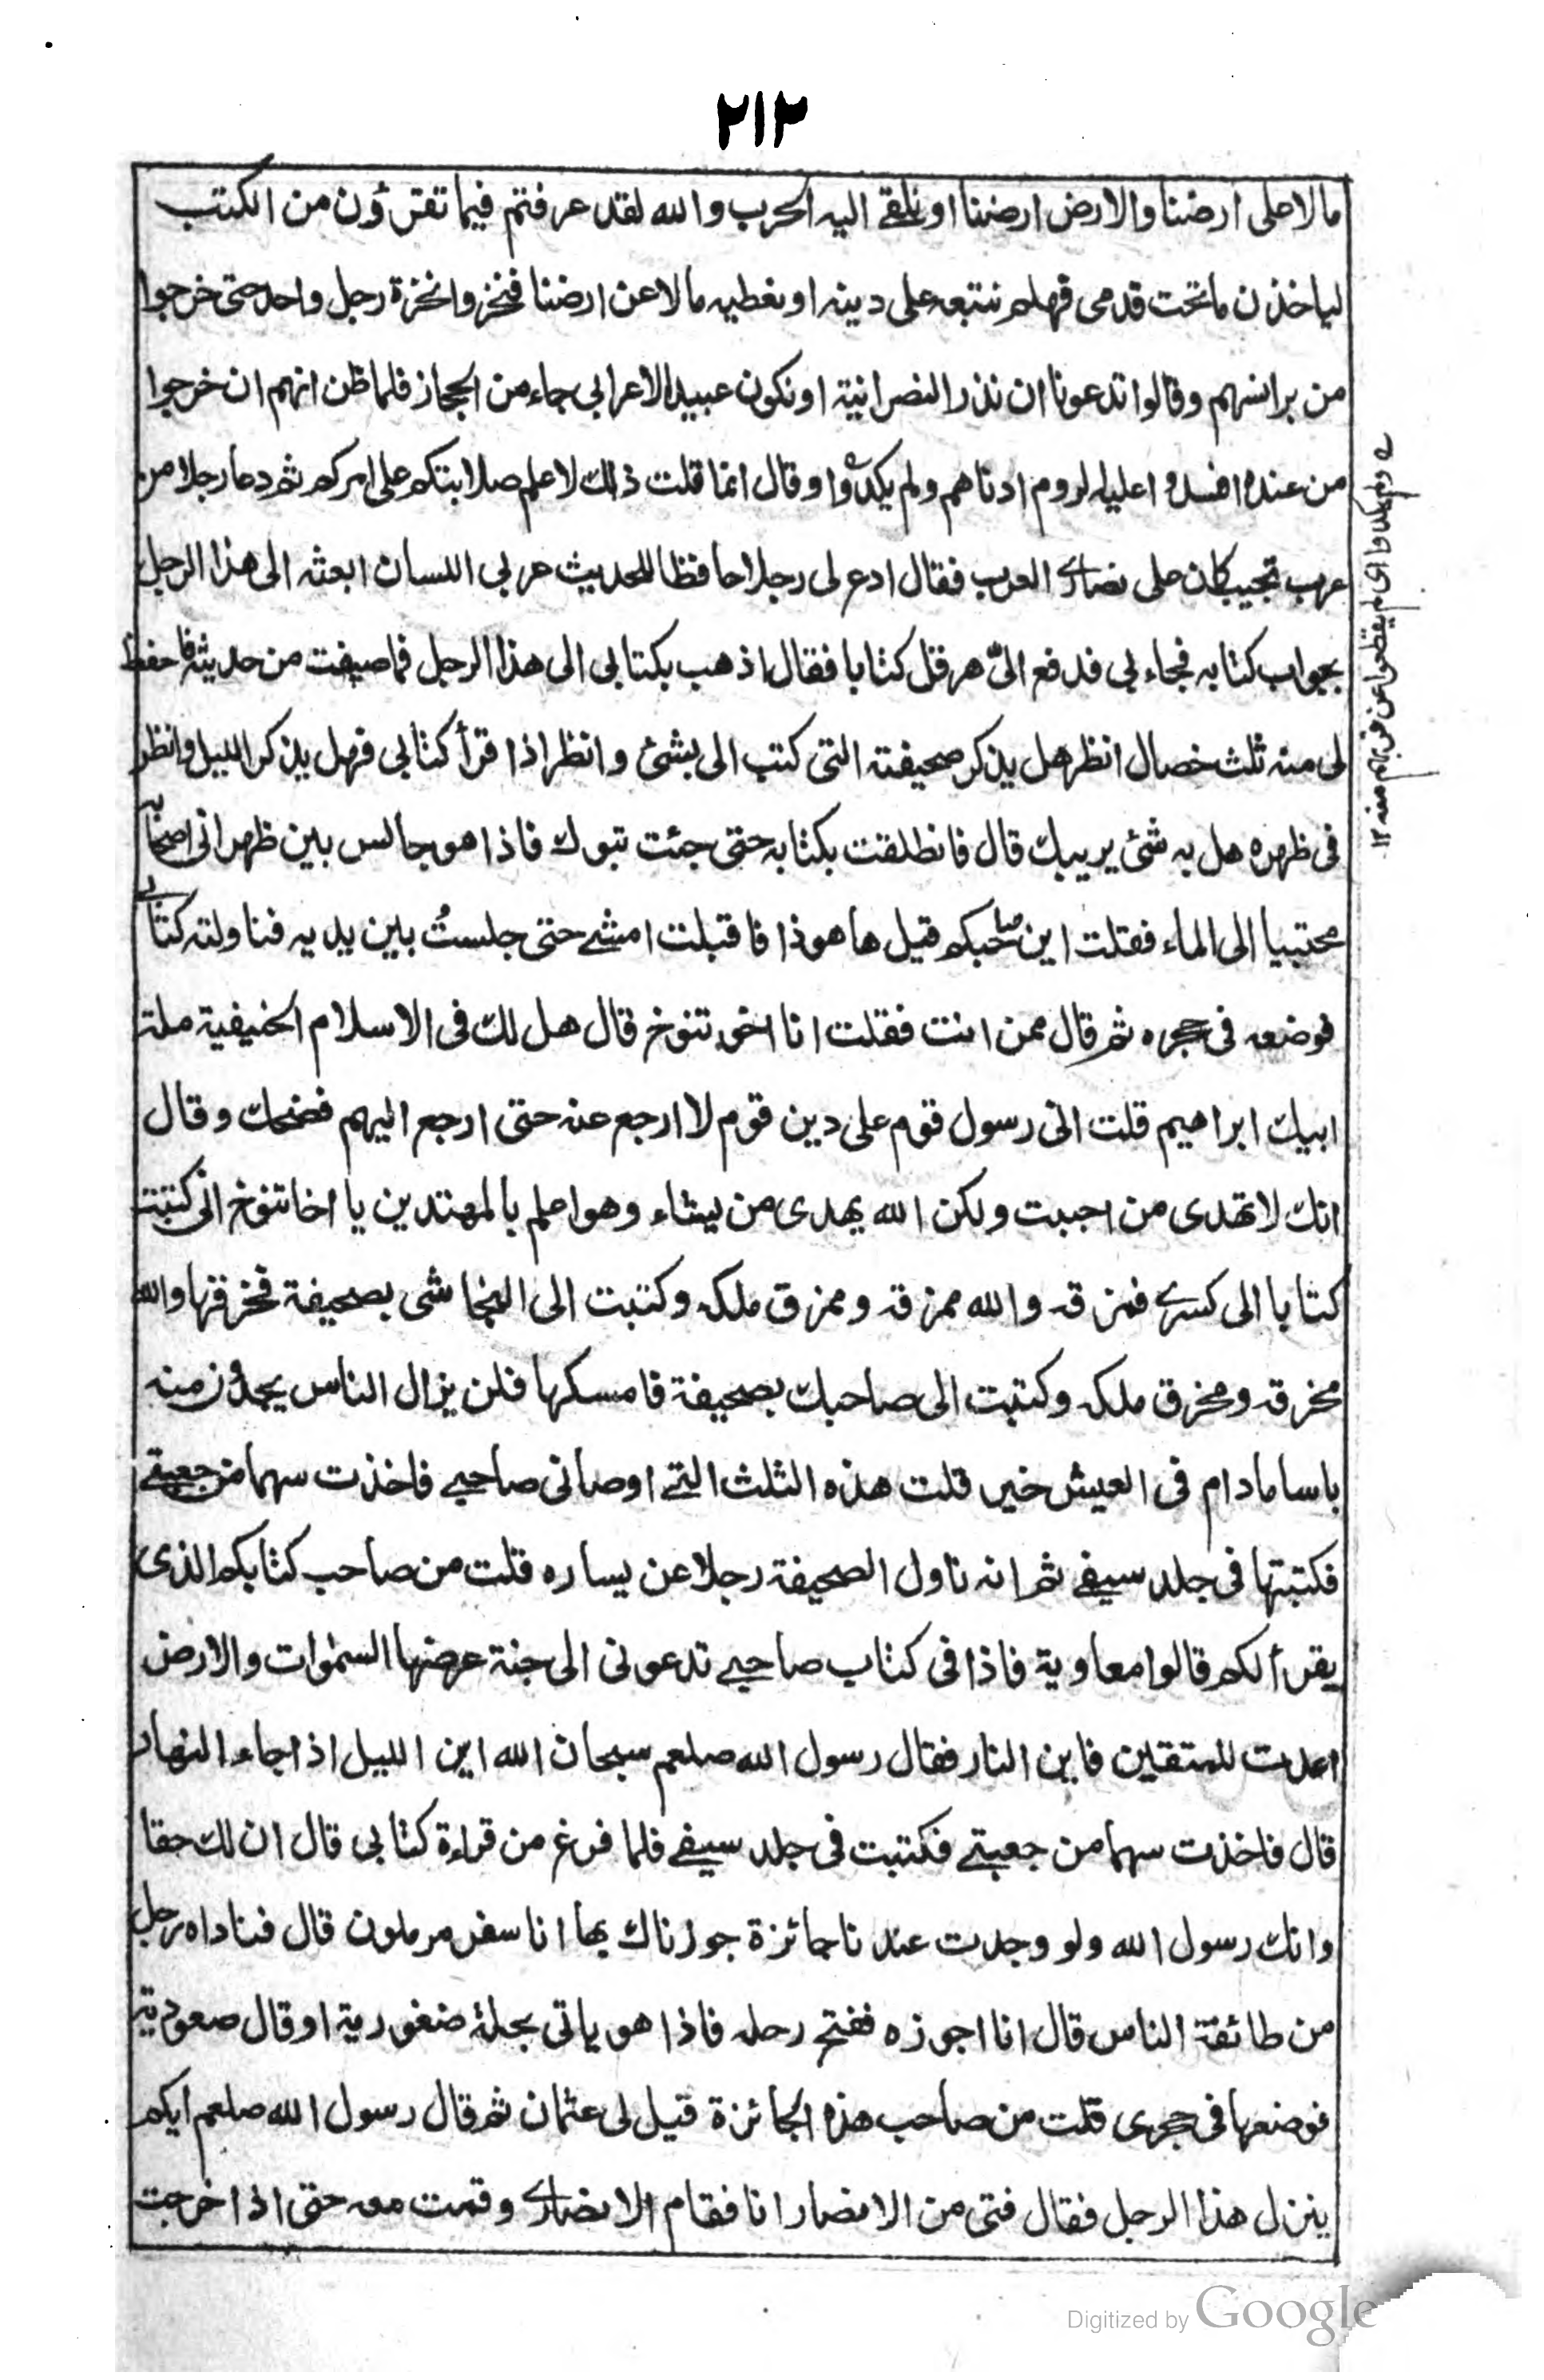 ٢١٢
مالا على ارضنا والارض ارضنا او نلقے اليه الحرب والله لقد عرفتم فيما تقرؤن من الكتب
لياخذن ماتحت قدمى فهلم نتبعه على دينه او نعطيه مالا عن ارضنا فنخروا نخرة رجل واحد حتى خرجوا
من برانسهم وقالوا تدعونا ان نذر النصرانية او نكون عبيدا لاعرابى جاء من الحجاز فلما ظن انهم ان خرجوا
من عنده افسدوا عليه الروم ادناهم ولم يكدوا وقال انما قلت ذلك لاعلم صلابتكم على امركم ثم دعا رجلا من
عرب تجيب كان على نصارے العرب فقال ادع لى رجلا حافظا للحديث عربى اللسان ابعثه الى هذا الرجل
بجواب كتابه فجاء بى فدفع الىّ هرقل كتابا فقال اذهب بكتابى الى هذا الرجل فما صيغت من حديثه فاحفظ
لى منه ثلث خصال انظر هل يذكر صحيفته التى كتب الى بشئ وانظر اذا قرأ كتابى فهل يذكر الليل وانظر
فى ظهره هل به شئ يريبك قال فانطلقت بكتابه حتى جئت تبوك فاذا هو جالس بين ظهرانى اصحابه
محتبيا الى الماء فقلت اين صاحبكم قيل ها هو ذا فاقبلت امشے حتى جلستُ بين يديه فناولته كتابى
فوضعه فى حجره ثم قال ممن انت فقلت انا اخو تنوخ قال هل لك فى الاسلام الحنيفية ملة
ابيك ابراهيم قلت انى رسول قوم على دين قوم لا ارجع عنه حتى ارجع اليهم فضحك وقال
انك لا تهدى من احببت ولكن الله يهدى من يشاء وهو اعلم بالمهتدين يا اخا تنوخ انى كتبت
كتابا الى كسرے فمزقه والله ممزقه وممزق ملكه وكتبت الى النجاشى بصحيفة فخرقها والله
مخرقه ومخرق ملكه وكتبت الى صاحبك بصحيفة فامسكها فلن يزال الناس يجدون منه
باسا مادام فى العيش خير قلت هذه الثلث التے اوصانى صاحبے فاخذت سهما من جعبتے
فكتبتها فى جلد سيفے ثم انه ناول الصحيفة رجلا عن يساره قلت من صاحب كتابكم الذى
يقرأ لكم قالوا معاوية فاذا فى كتاب صاحبے تدعونى الى جنة عرضها السمٰوات والارض
اعدت للمتقين فاين النار فقال رسول الله صلعم سبحان الله اين الليل اذا جاء النهار
قال فاخذت سهما من جعبتے فكتبت فى جلد سيفے فلما فرغ من قراءة كتابى قال ان لك حقا
وانك رسول الله ولو وجدت عندنا جائزة جوزناك بها انا سفر مرملون قال فناداه رجل
من طائفة الناس قال انا اجوزه ففتح رحله فاذا هو ياتى بحلة ضغورية او قال صعودية
فوضعها فى حجرى قلت من صاحب هذه الجائزة قيل لى عثمان ثم قال رسول الله صلعم ايكم
ينزل هذا الرجل فقال فتى من الانصار انا فقام الانصارے وقمت معه حتى اذا خرجت
ولم يكدوا اى لم يقطعوا عن قربهم منه ١٢
Digitized by Google